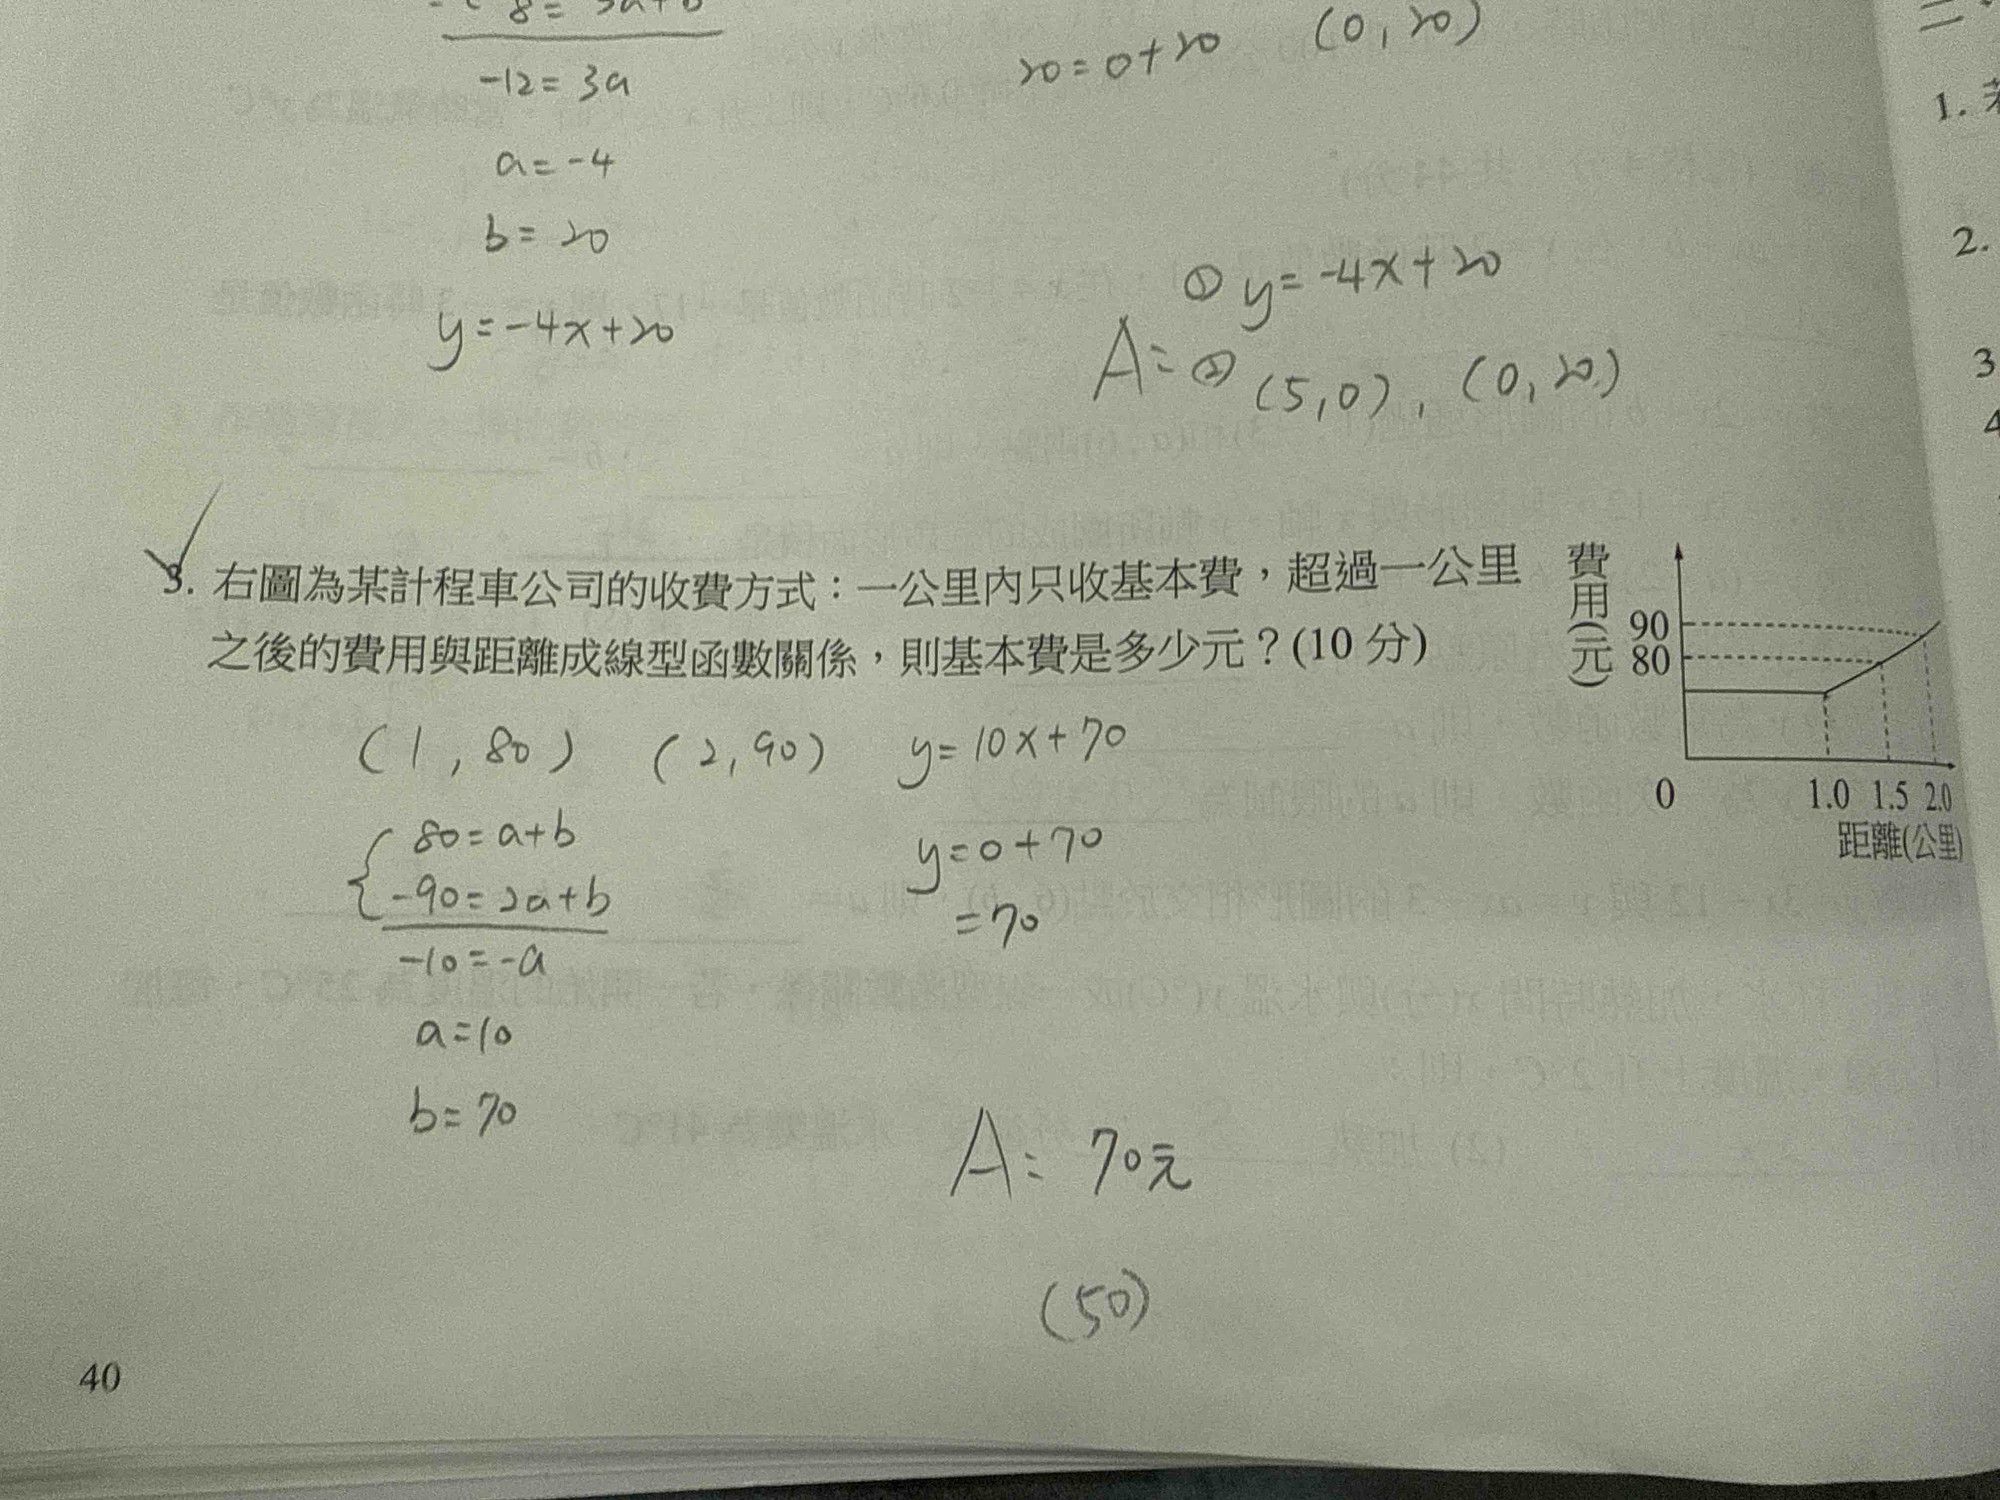 8 = 3a+b
-12 = 3a
a = -4
b = 20
y = -4x+20
20 = 0+20 (0, 20)
① y = -4x+20
A = ② (5, 0), (0, 20)
3. 右圖為某計程車公司的收費方式：一公里內只收基本費，超過一公里
之後的費用與距離成線型函數關係，則基本費是多少元？(10 分)
(1, 80) (2, 90)
80 = a+b
-90 = 2a+b
-10 = -a
a = 10
b = 70
y = 10x+70
y = 0+70
= 70
A = 70元
(50)
費用(元)
90
80
0 1.0 1.5 2.0
距離(公里)
40
1.
2.
3
4